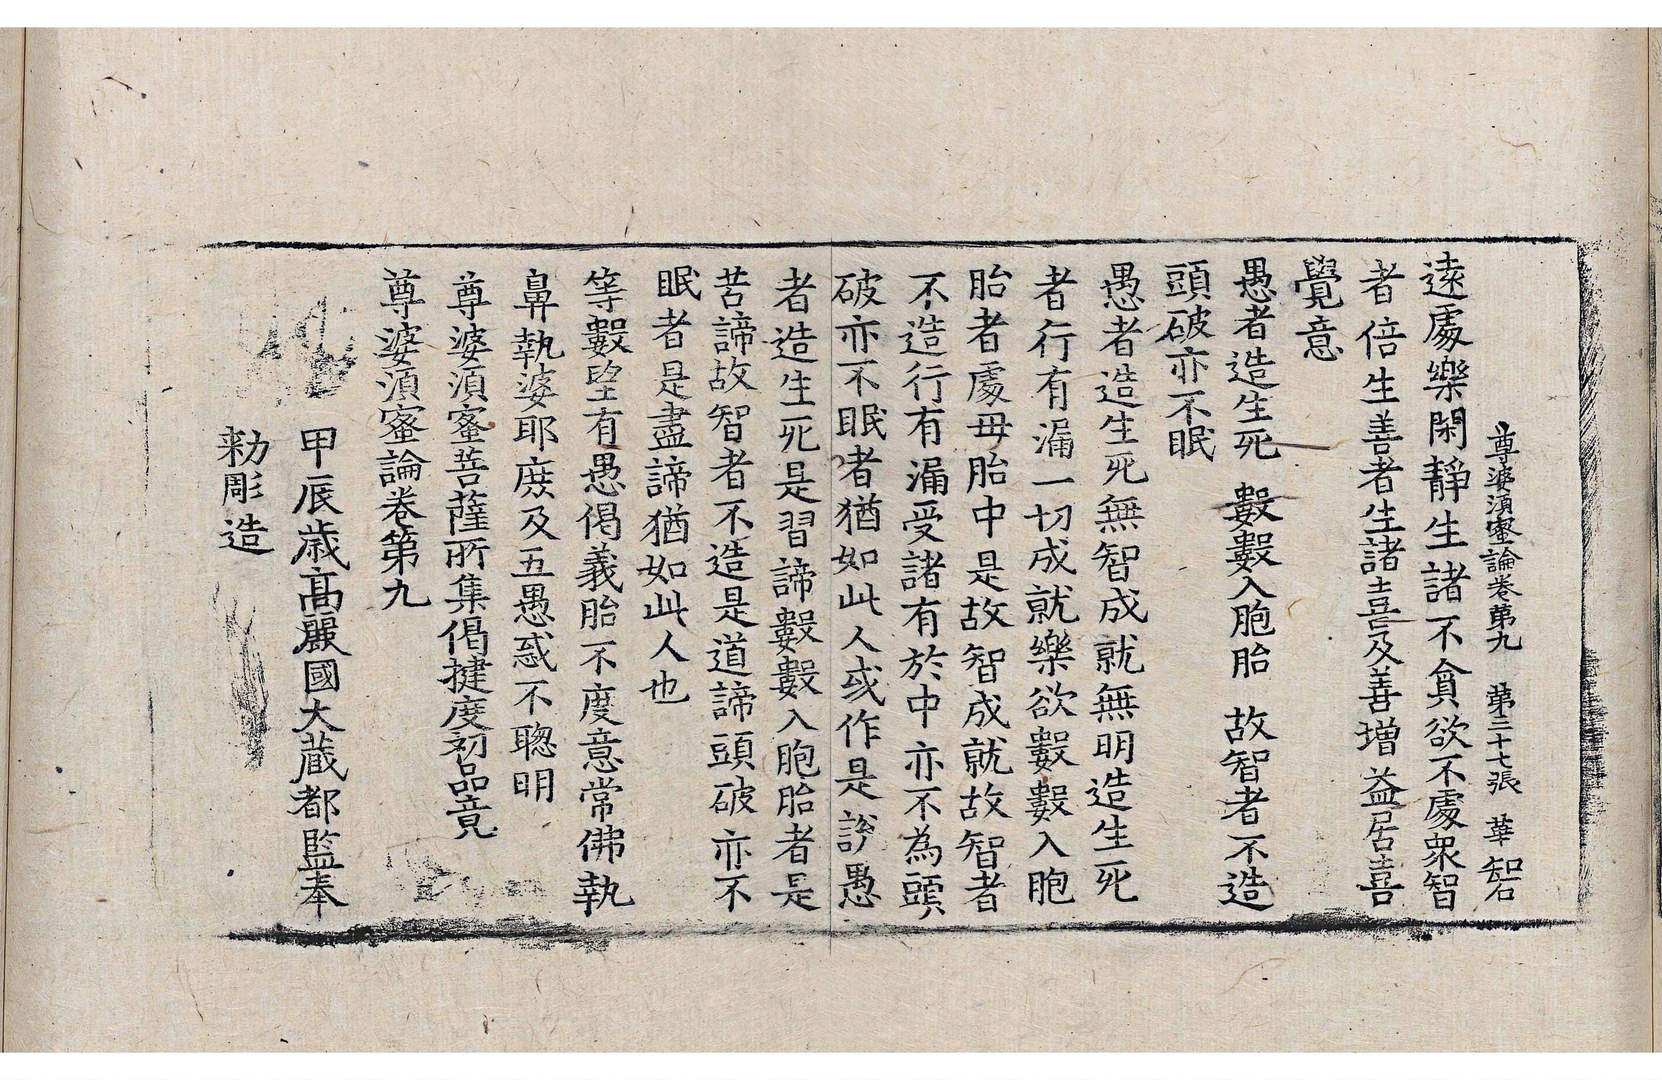 尊婆湏蜜論卷苐九 苐三十七張 華 㘽
遠處樂閑靜生諸不貪欲不處衆智
者倍生善者生諸喜及善增益居喜
覺意
愚者造生死 數數入胞胎 故智者不造
頭破亦不眠
愚者造生死無智成就無明造生死
者行有漏一切成就樂欲數數入胞
胎者處母胎中是故智成就故智者
不造行有漏受諸有於中亦不為頭
破亦不眠者猶如此人或作是說愚
者造生死是習諦數數入胞胎者是
苦諦故智者不造是道諦頭破亦不
眠者是盡諦猶如此人也
等數望有愚偈義胎不度意常佛執
鼻執婆耶庶及五愚惑不聦明
尊婆湏蜜菩薩所集偈揵度初品竟
尊婆湏蜜論卷第九
甲辰歲高麗國大藏都監奉
勑彫造